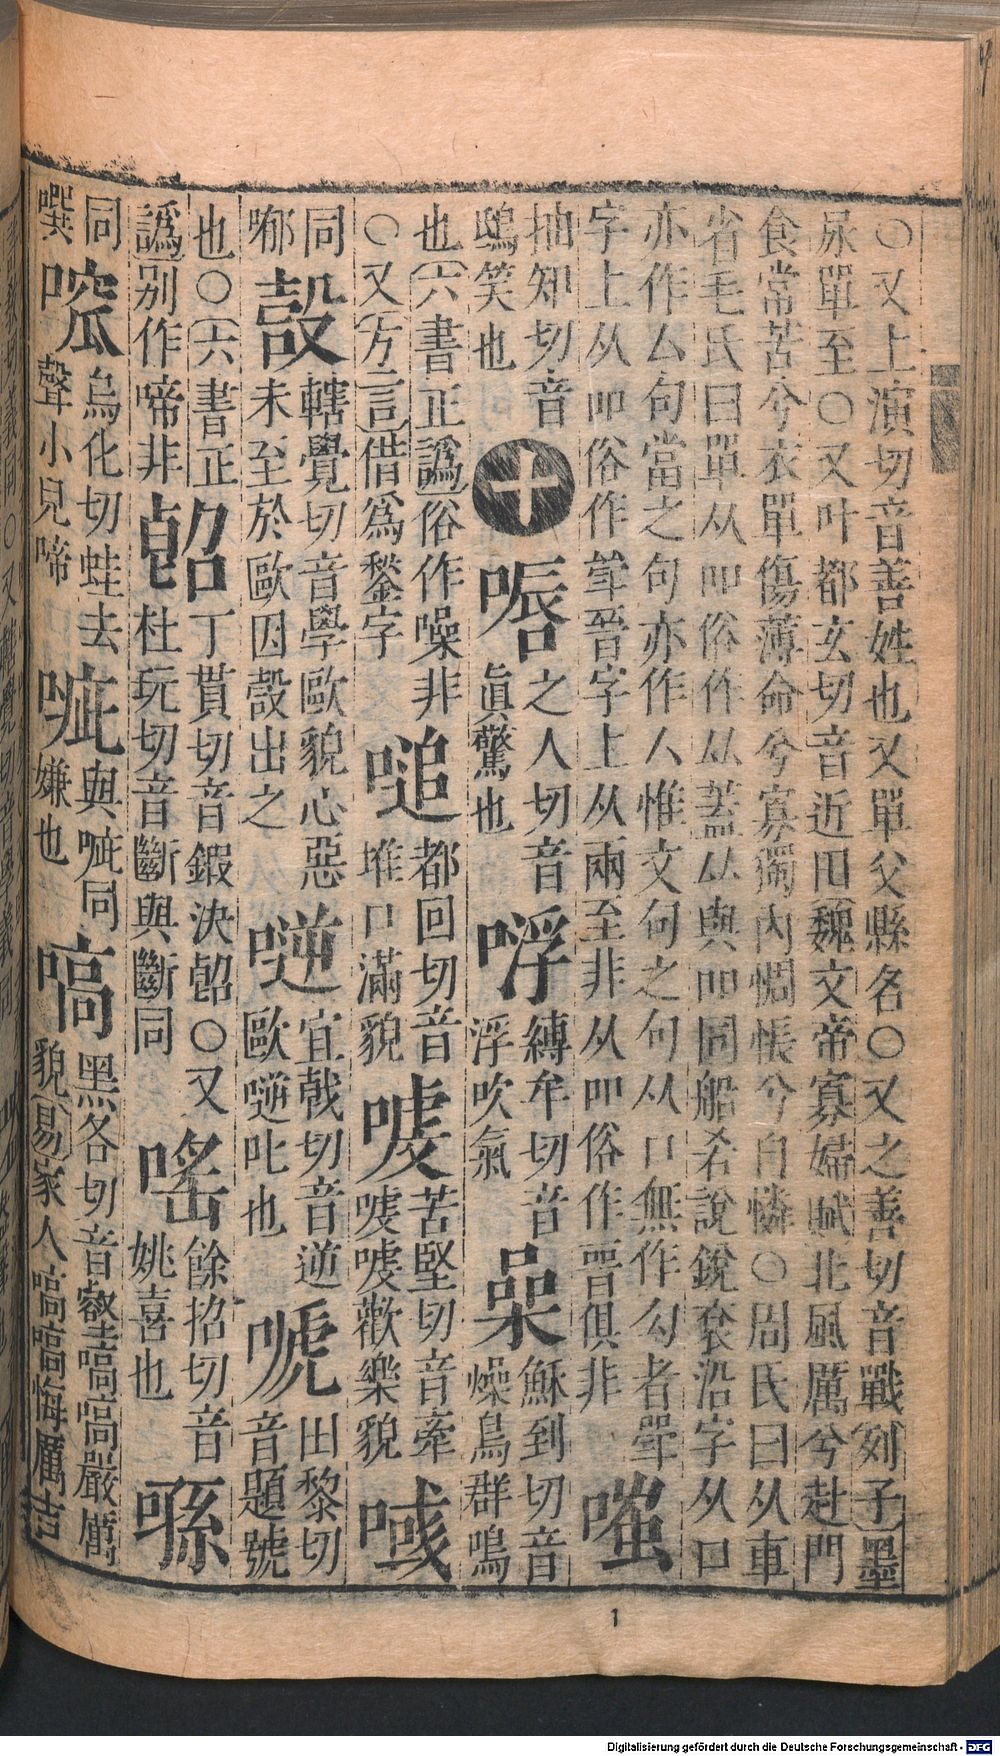 ○又上演切音善姓也又單父縣名○又之善切音戰列子墨
尿單至○又叶都玄切音近田魏文帝寡婦賦北風厲兮赴門
食常苦兮衣單傷薄命兮寡獨內惆悵兮自憐○周氏曰从車
省毛氏曰單从吅俗作从厸蓋厸與吅同船兖說銳衮沿字从口
亦作厶句當之句亦作人惟文句之句从口無作勾者斝
字上从吅俗作斚晉字上从兩至非从吅俗作晋俱非 嗤
抽知切音鴟笑也 十 之人切音眞驚也 縛牟切音浮吹氣 喿 穌到切音燥鳥群鳴
也六書正譌俗作噪非○又方言借爲鍫字 都回切音堆口滿貌 苦堅切音牽歡樂貌
同 嗀 轄覺切音學歐貌心惡未至於歐因嗀出之 宜戟切音逆歐叱也 嗁 田黎切音題號
也○六書正譌別作啼非 丁貫切音鍛決○又杜玩切音斷與斷同 嗂 餘招切音姚喜也
同噀 烏化切蛙去聲小兒啼 與同嫌也 嗃 黑各切音壑嗃嗃嚴厲貌易家人嗃嗃悔厲吉
1
Digitalisierung gefördert durch die Deutsche Forschungsgemeinschaft - DFG